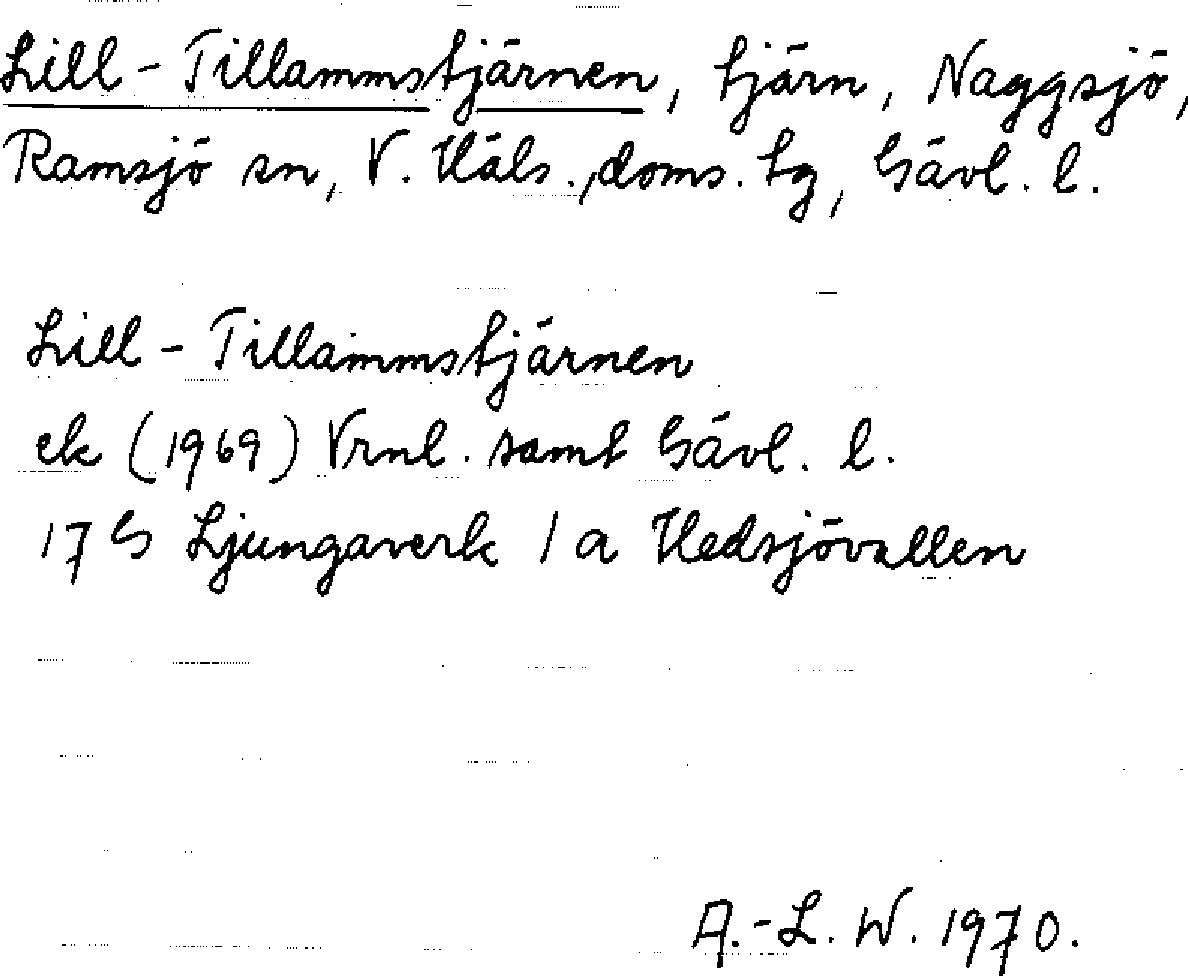 Lill-Tillammstjärnen, tjärn, Naggsjö,
Ramsjö sn, V. Häls., doms. tg, Gävl. l.
Lill-Tillammstjärnen
ek (1969) Vrnl. samt Gävl. l.
17 G Ljungaverk 1 a Hedsjövallen
A.-L. W. 1970.